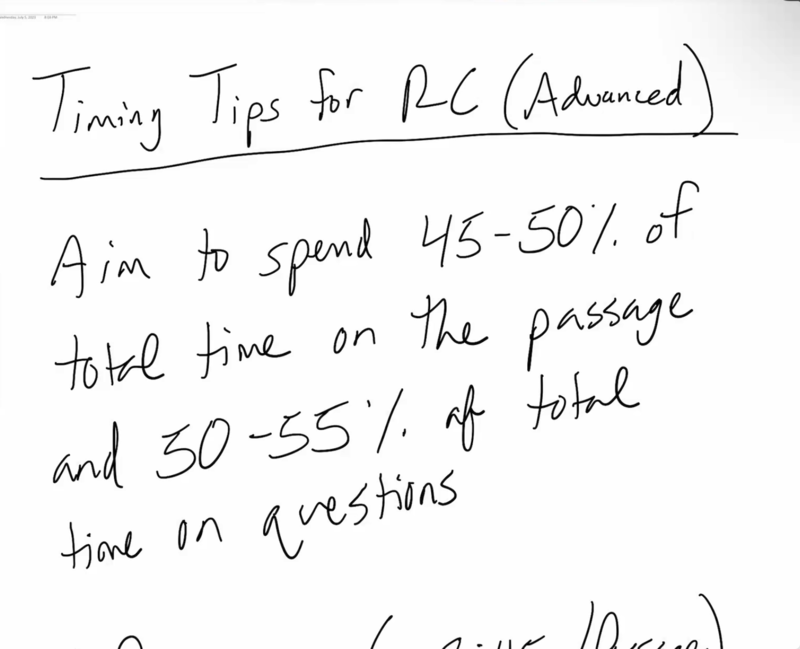 Timing Tips for RC (Advanced)
Aim to spend 45-50% of
total time on the passage
and 50-55% of total
time on questions